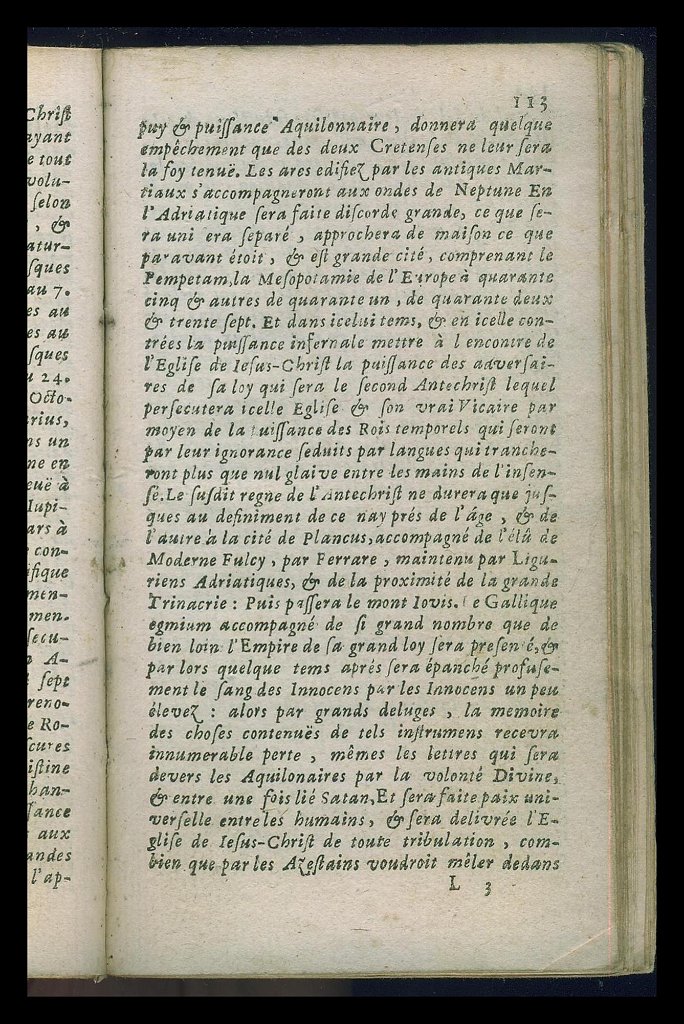 Christ
ayant
e tout
volu-
selon
, &
atur-
sques
au 7.
es au
es au
sques
u 24.
Octo-
rius,
ns un
ne en
euë à
Iupi-
ars à
con-
ifique
men-
men.
secu-
n A-
sept
reno-
e Ro-
scures
istine
han-
sance
aux
andes
l'ap-
113
puy & puissance Aquilonnaire, donnera quelque
empêchement que des deux Cretenses ne leur sera
la foy tenuë. Les ares edifiez par les antiques Mar-
tiaux s'accompagneront aux ondes de Neptune En
l'Adriatique sera faite discorde grande, ce que se-
ra uni era separé, approchera de maison ce que
paravant étoit, & est grande cité, comprenant le
Pempetam, la Mesopotamie de l'Europe à quarante
cinq & autres de quarante un, de quarante deux
& trente sept. Et dans icelui tems, & en icelle con-
trées la puissance infernale mettre à l encontre de
l'Eglise de Iesus-Christ la puissance des adversai-
res de sa loy qui sera le second Antechrist lequel
persecutera icelle Eglise & son vrai Vicaire par
moyen de la puissance des Rois temporels qui seront
par leur ignorance seduits par langues qui tranche-
ront plus que nul glaive entre les mains de l'insen-
sé. Le susdit regne de l'Antechrist ne durera que jus-
ques au definiment de ce nay prés de l'áge, & de
l'autre à la cité de Plancus, accompagné de l'élû de
Moderne Fulcy, par Ferrare, maintenu par Ligu-
riens Adriatiques, & de la proximité de la grande
Trinacrie : Puis passera le mont Iovis. Le Gallique
egmium accompagné de si grand nombre que de
bien loin l'Empire de sa grand loy sera presen é, &
par lors quelque tems aprés sera épanché profuse-
ment le sang des Innocens par les Innocens un peu
élevez : alors par grands deluges, la memoire
des choses contenuës de tels instrumens recevra
innumerable perte, mêmes les lettres qui sera
devers les Aquilonaires par la volonté Divine,
& entre une fois lié Satan, Et sera faite paix uni-
verselle entre les humains, & sera delivrée l'E-
glise de Iesus-Christ de toute tribulation, com-
bien que par les Azestains voudroit mêler dedans
L 3